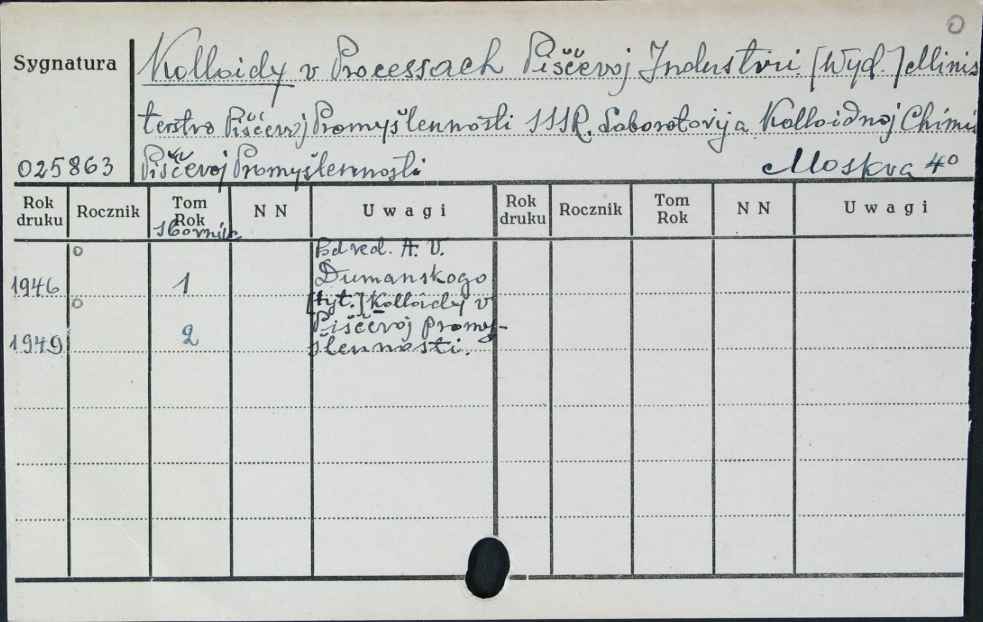 o
Sygnatura
Kolloidy v Processach Piščevoj Industrii. [Wyd.] Minis
terstvo Piščevoj Promyšlennosti SSSR. Laborotorija Kolloidnoj Chimii
025863 Piščevoj Promyšlennosti Moskva 4º
Rok druku Rocznik Tom Rok N N Uwagi Rok druku Rocznik Tom Rok N N Uwagi
sbornik
o Pod red. A. V.
1946 1 Dumanskogo
o [tyt.] Kolloidy v
Piščevoj promy-
1949 2 šlennosti.